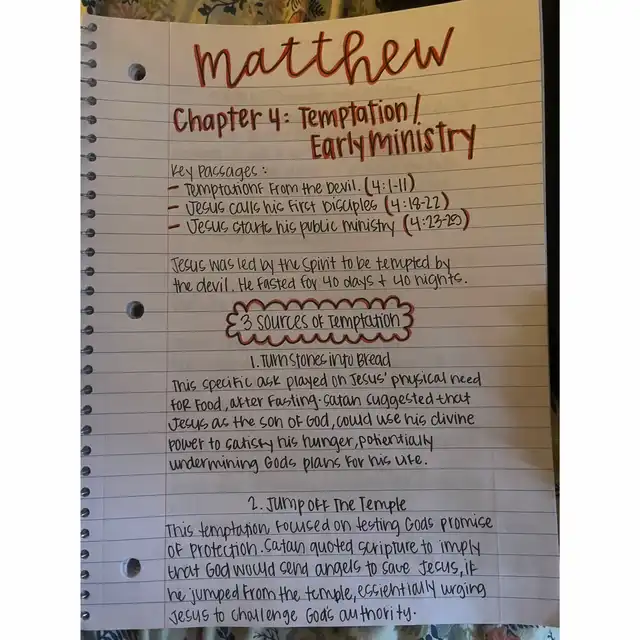 matthew
Chapter 4: Temptation/
Early Ministry
Key Passages:
- Temptations From the Devil. (4:1-11)
- Jesus calls his First Disciples (4:18-22)
- Jesus starts his public ministry (4:23-25)
Jesus was led by the Spirit to be tempted by
the devil. He fasted for 40 days + 40 nights.
3 Sources of Temptation
1. Turn Stones into Bread
This specific ask played on Jesus' physical need
for food, after fasting. Satan suggested that
Jesus as the son of God, could use his divine
power to satisfy his hunger, potientially
undermining Gods plans for his life.
2. Jump off The Temple
This temptation focused on testing Gods promise
of protection. Satan quoted scripture to imply
that God would send angels to save Jesus, if
he jumped from the temple, essientially urging
Jesus to challenge God's authority.